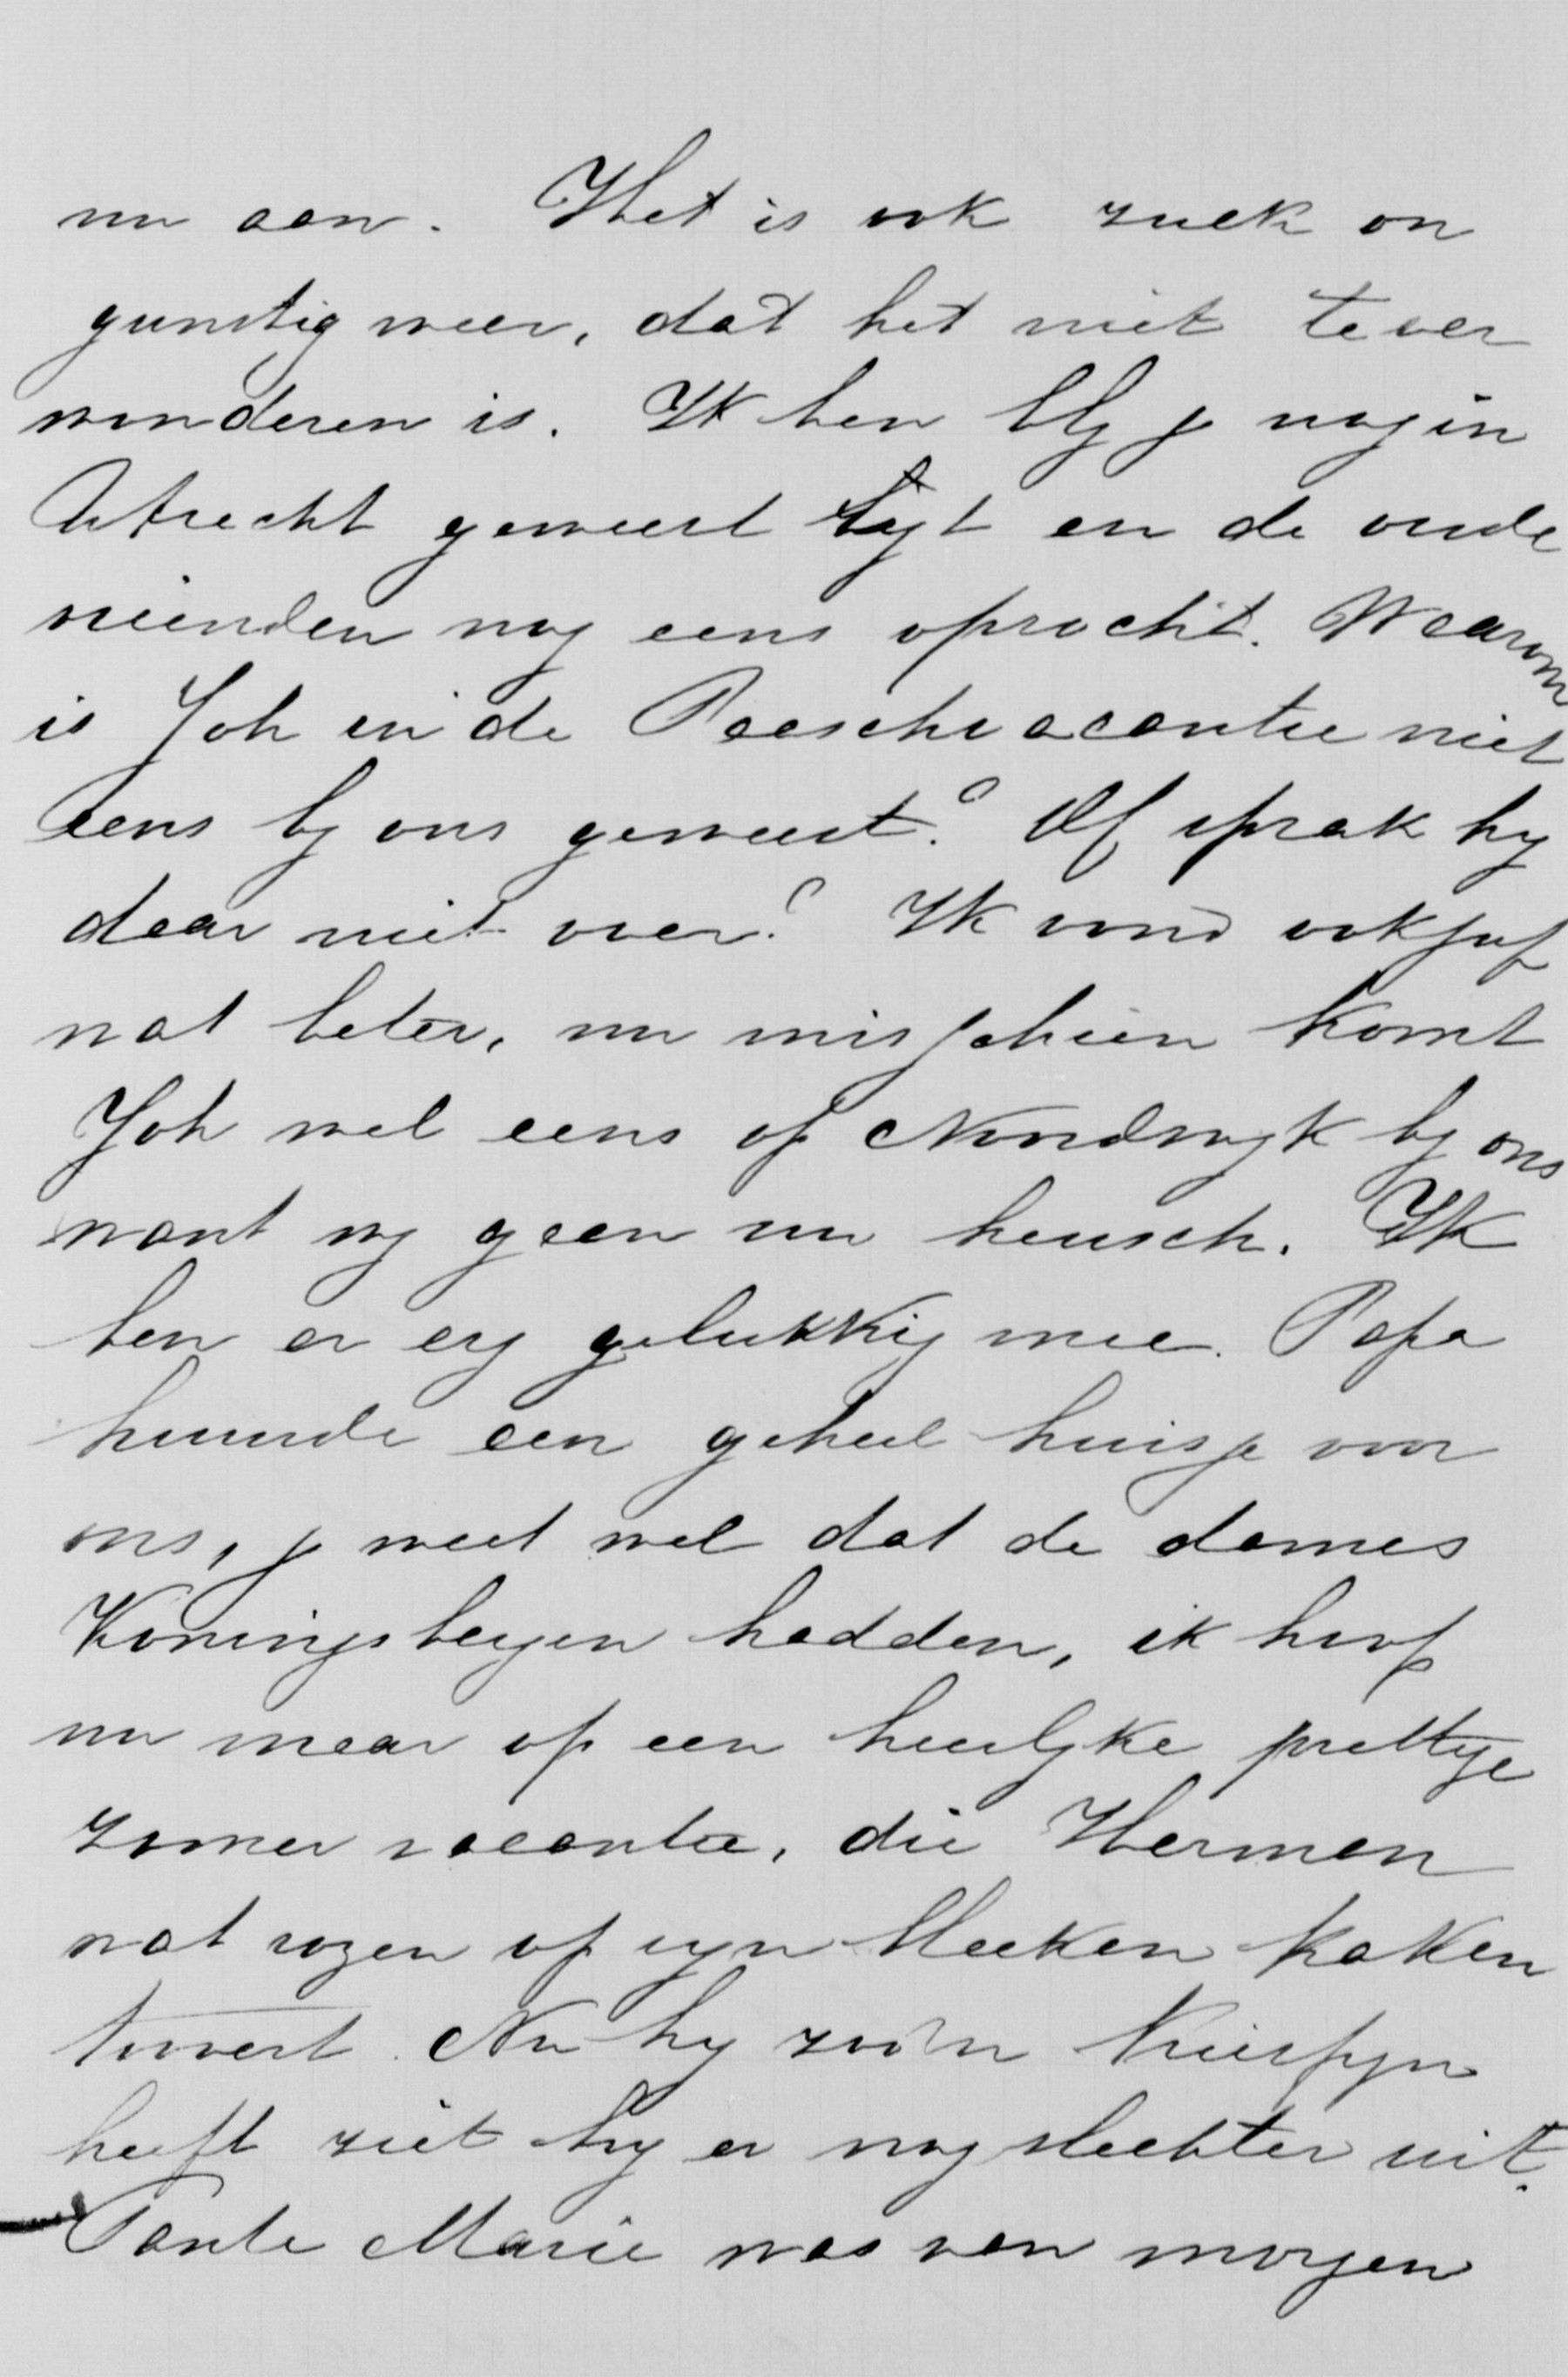 nu aan. Het is ook zulk on
gunstig weer, dat het niet te ver
wonderen is. Ik ben bly je nog in
Utrecht geweest zyt en de oude
vrienden nog eens opzocht. Waarom
is Joh in de Paaschvacantie niet
eens by ons geweest? Of sprak hy
daar niet over? Ik vond ook juf
wat beter, nu misschien komt
Joh wel eens op Noordwyk by ons
want wy gaan nu heusch. Ik
ben er erg gelukkig mee. Papa
huurde een geheel huisje voor
ons, je weet wel dat de dames
Koningsbergen hadden, ik hoop
nu maar op een heerlyke prettige
zomer vacantie, die Herman
wat rozen op zyn bleeken kaken
tovert. Nu hy zoo'n kiespyn
heeft ziet hy er nog slechter uit.
Tante Marie was van morgen